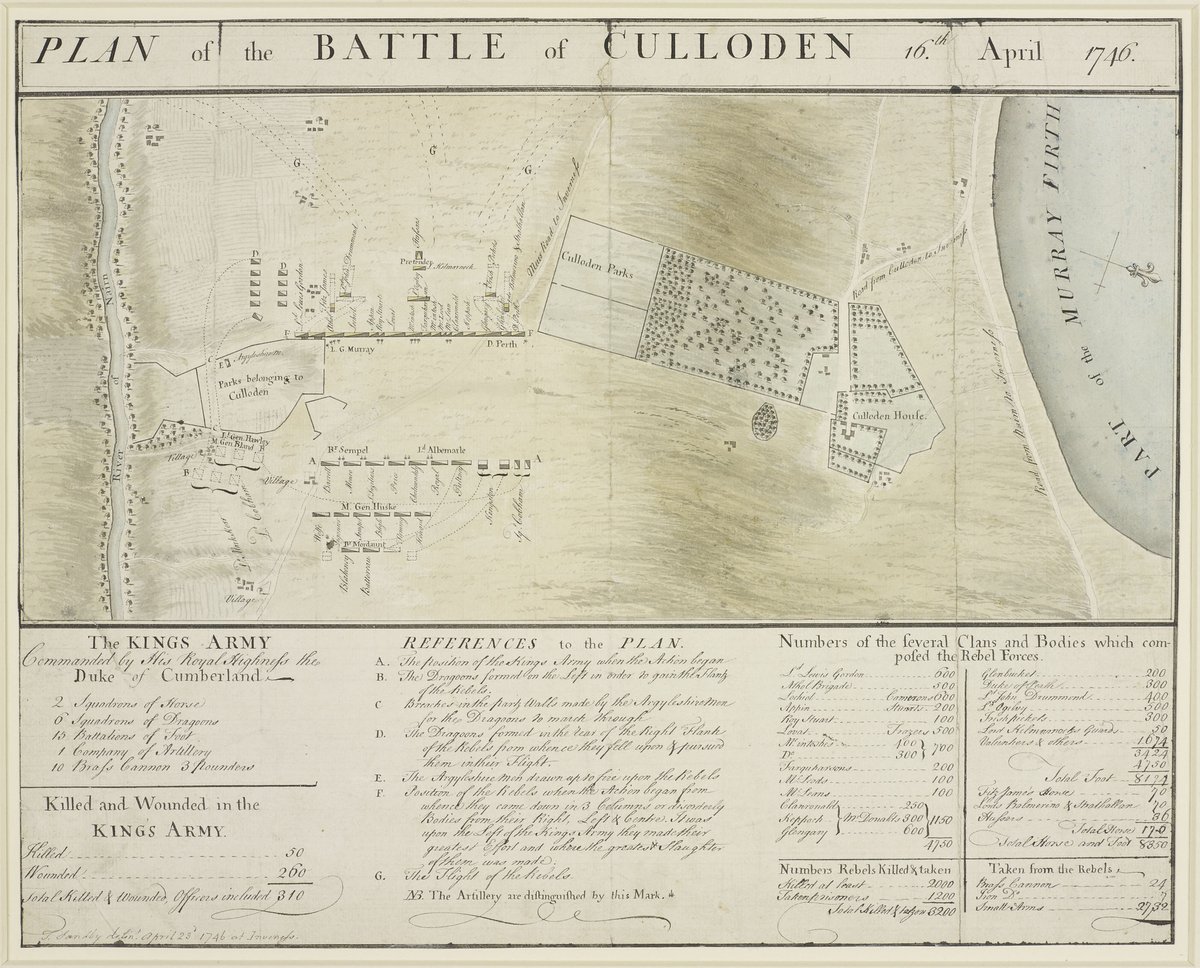 PLAN of the BATTLE of CULLODEN 16.th April 1746.
River of Nairn
G
G
G
D
D
Pretender
Ld. Kilmarnock
New Road to Inverness
Culloden Parks
Road from Culloden to Inverness
PART of the MURRAY FIRTH
Culleden House.
Road from Nairn to Inverness
F
F
L. G. Murray
D. Perth
C
E
Argyleshiremen
Parks belonging to
Culloden
Lt. Gen. Hawley
M. Gen. Bland
B
B
Village
Village
Village
A
Br. Sempel
Ld. Albemarle
A
M. Gen Huske
Br. Mordaunt
Kingston
of Cobhams
D. Cobham
The KINGS ARMY
Commanded by His Royal Highness the
Duke of Cumberland.
2 Squadrons of Horse
6 Squadrons of Dragoons
15 Battalions of Foot
1 Company of Artillery
10 Brass Cannon 3 pounders
Killed and Wounded in the
KING'S ARMY.
Killed 50
Wounded 260
Total Killed & Wounded Officers included 310
REFERENCES to the PLAN.
A. The position of the Kings Army when the Action began
B. The Dragoons formed on the Left in order to gain the Flank
of the Rebels.
C Breaches in the park Walls made by the Argyleshiremen
for the Dragoons to march through
D. The Dragoons formed in the rear of the Right Flank
of the Rebels from whence they fell upon & pursued
them in their Flight.
E. The Argylshire men drawn up to fire upon the Rebels
F. Position of the Rebels when the Action began from
whence they came down in 3 Columns or disorderly
Bodies from their Right, Left & Centre. It was
upon the Left of the Kings Army they made their
greatest Effort and where the greatest Slaughter
of them was made.
G. The Flight of the Rebels
NB. The Artillery are distinguished by this Mark.
Numbers of the several Clans and Bodies which com-
posed the Rebel Forces.
Ld. Lewis Gordon 600
Athol Brigade 500
Lochiel Camerons 600
Appin Stuarts 200
Roy Stuart 100
Lovat Frazers 500
McIntoshes 400
Do. 300 } 700
Farquharsons 200
McLeods 100
McLeans 100
Clanronald 250
Keppoch McDonalds 300 } 1150
Glengary 600
4750
Glenbucket 200
Duke of Perth 300
Ld. John Drummond 400
Ld. Ogilvy 500
Irish pickets 300
Lord Kilmarnocks Guard 50
Valuntiers & others 1674
3424
4750
Total Foot 8174
Fitz James's Horse 70
Louis Balmerino & Strathallan 70
Hussars 36
Total Horse 176
Total Horse and Foot 8350
Numbers Rebels Killed & taken
Killed at least 2000
Taken prisoners 1200
Total Killed & taken 3200
Taken from the Rebels
Brass Cannon 24
Iron Do. 7
Small Arms 2732
T. Sandby delin. April 23d 1746 at Inverness.